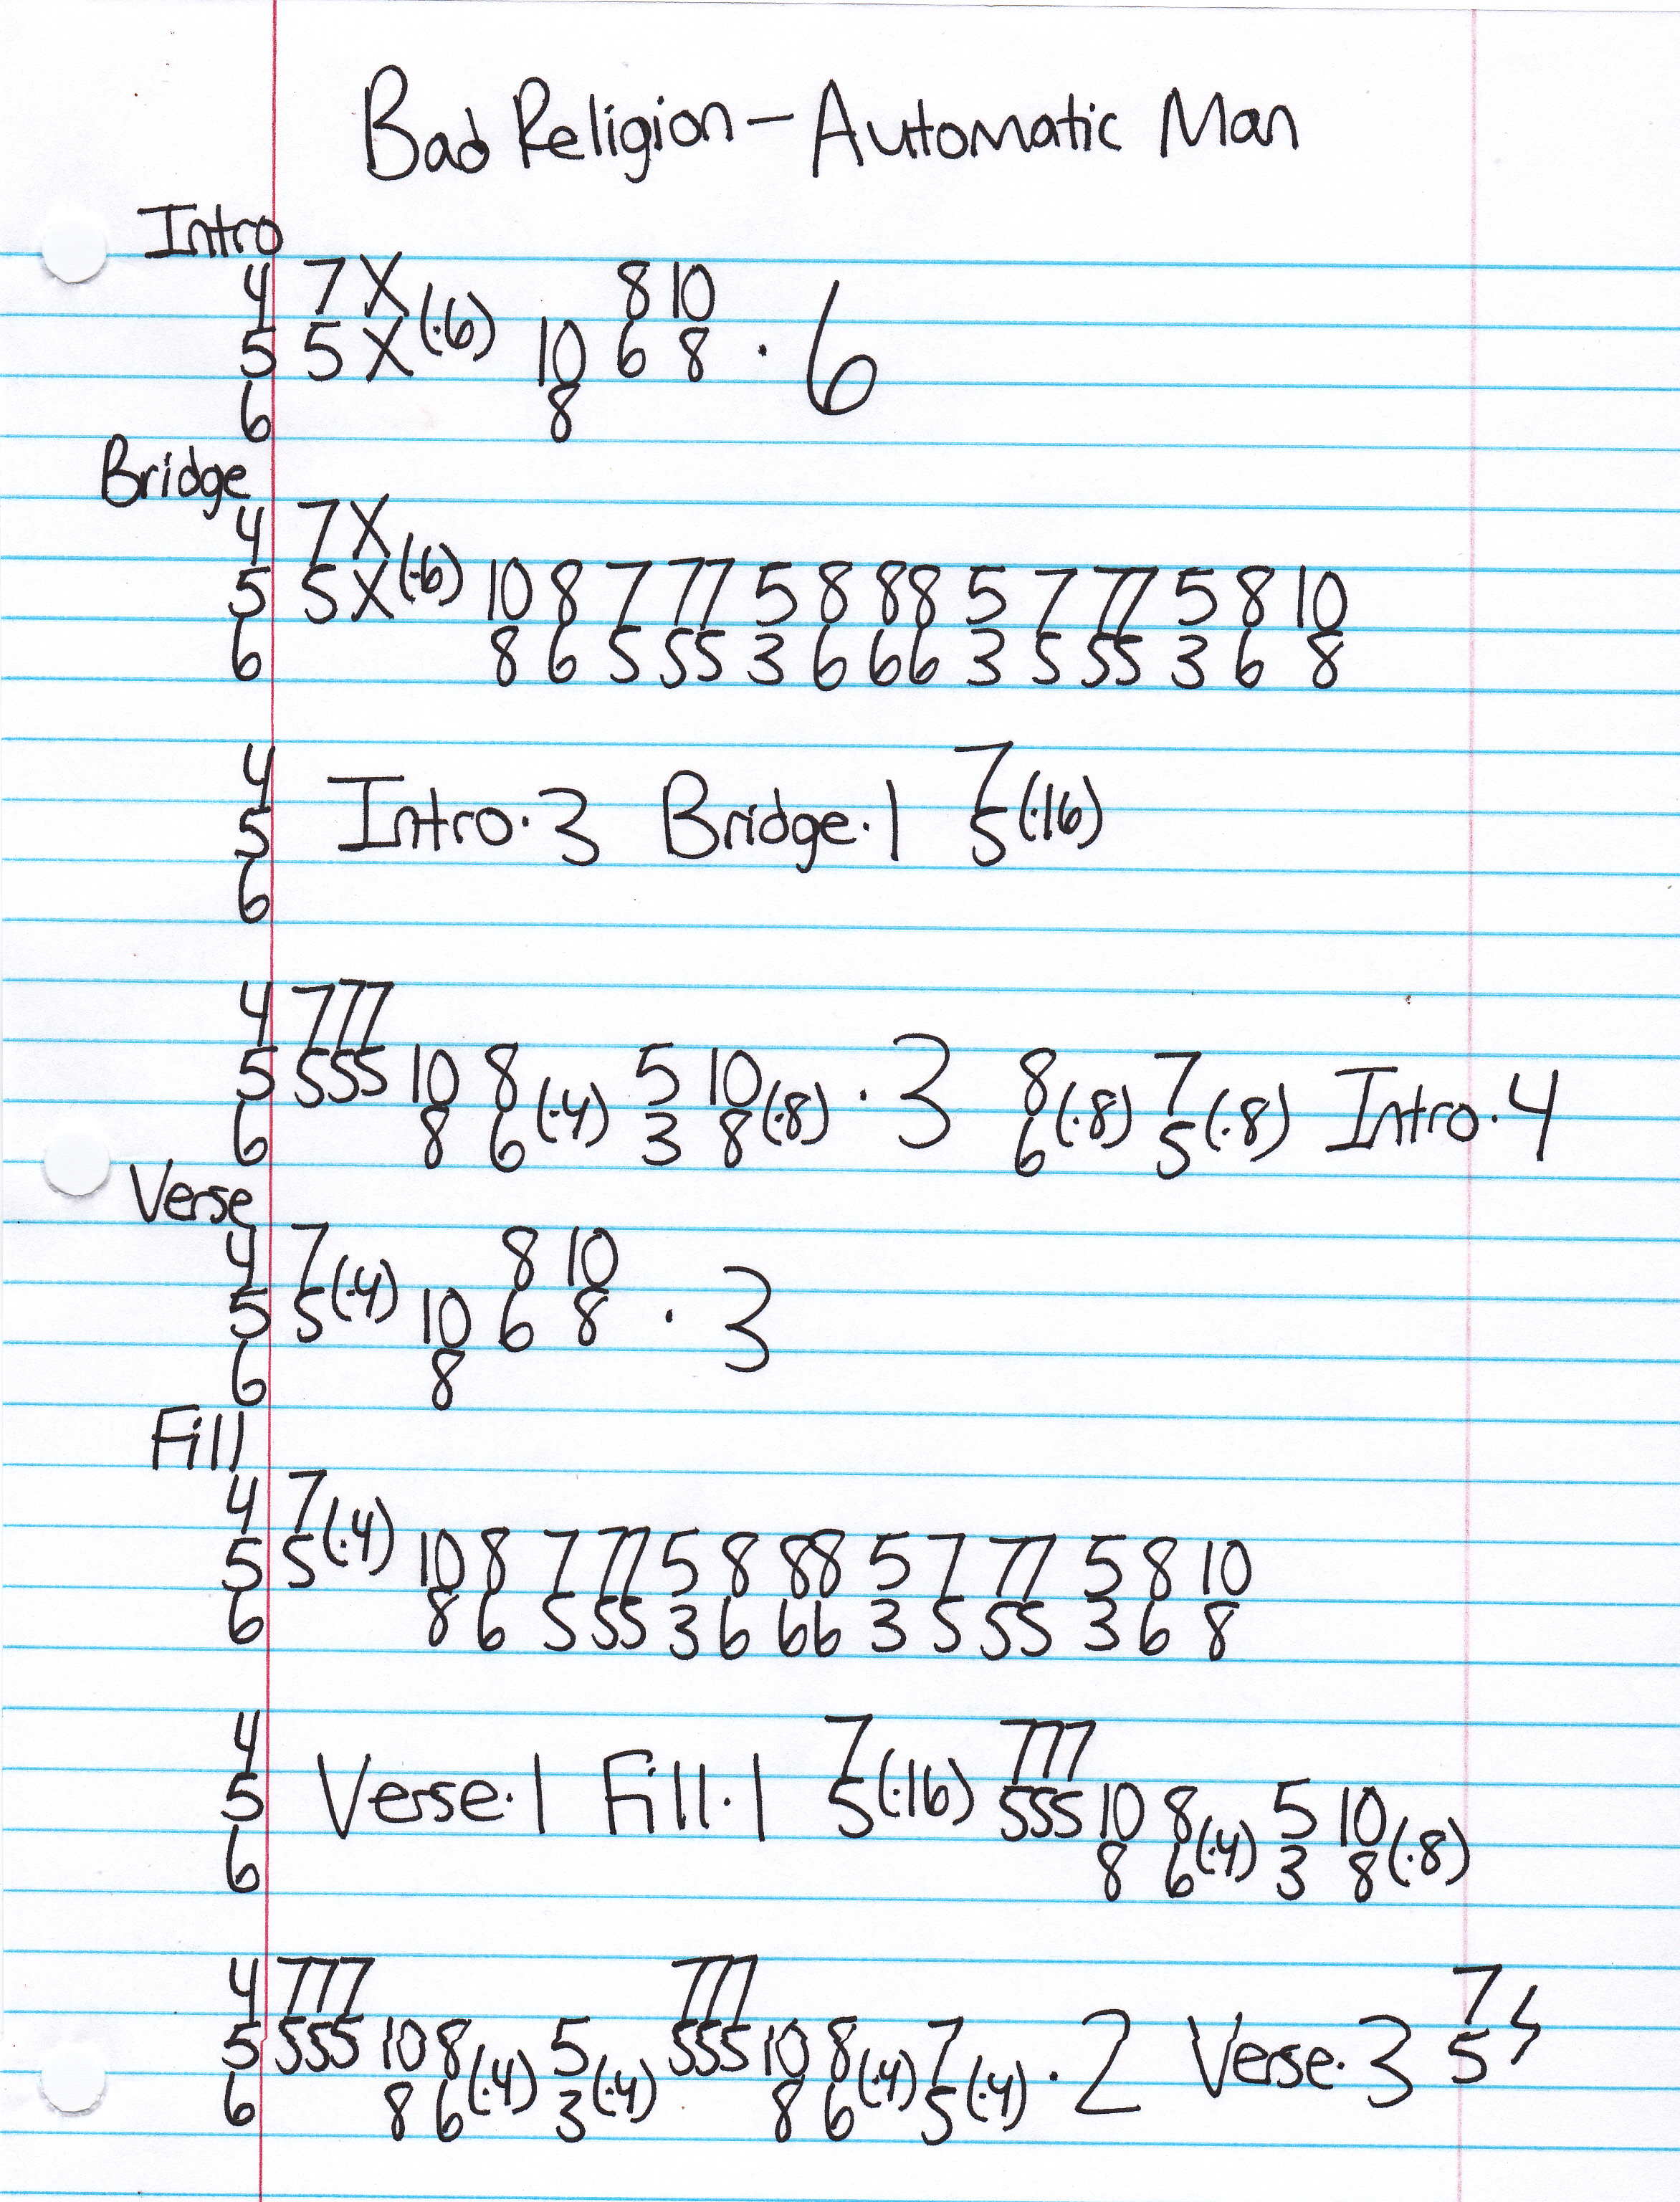 Bad Religion - Automatic Man
Intro
4 7 X 8 10
5 5 X (·6) 10 6 8 · 6
6 8
Bridge
4 7 X
5 5 X (·6) 10 8 7 77 5 8 88 5 7 77 5 8 10
6 8 6 5 55 3 6 66 3 5 55 3 6 8
4 7
5 Intro·3 Bridge·1 5 (·16)
6
4 777
5 555 10 8 (·4) 5 10 (·8) · 3 8 (·8) 7 (·8) Intro·4
6 8 6 3 8 6 5
Verse
4 7 (·4) 8 10
5 5 10 6 8 · 3
6 8
Fill
4 7 (·4)
5 5 10 8 7 77 5 8 88 5 7 77 5 8 10
6 8 6 5 55 3 6 66 3 5 55 3 6 8
4 7 777
5 Verse·1 Fill·1 5 (·16) 555 10 8 (·4) 5 10 (·8)
6 8 6 3 8
4 777 777 7
5 555 10 8 (·4) 5 (·4) 555 10 8 (·4) 7 (·4) · 2 Verse·3 5
6 8 6 3 8 6 5